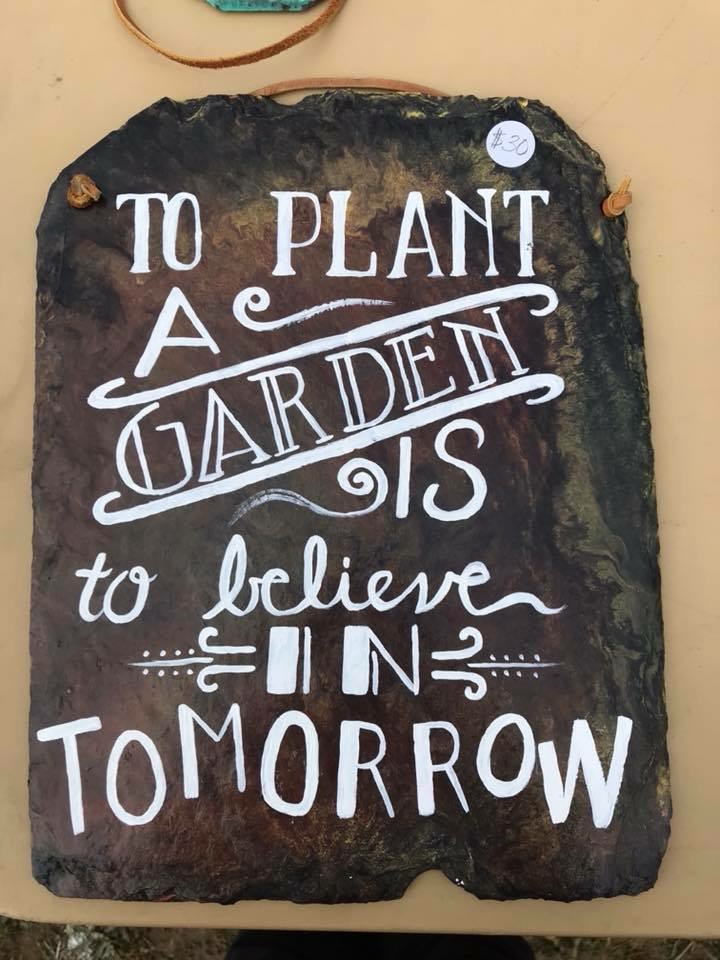 $30
TO PLANT
A
GARDEN
IS
to believe
IN
TOMORROW